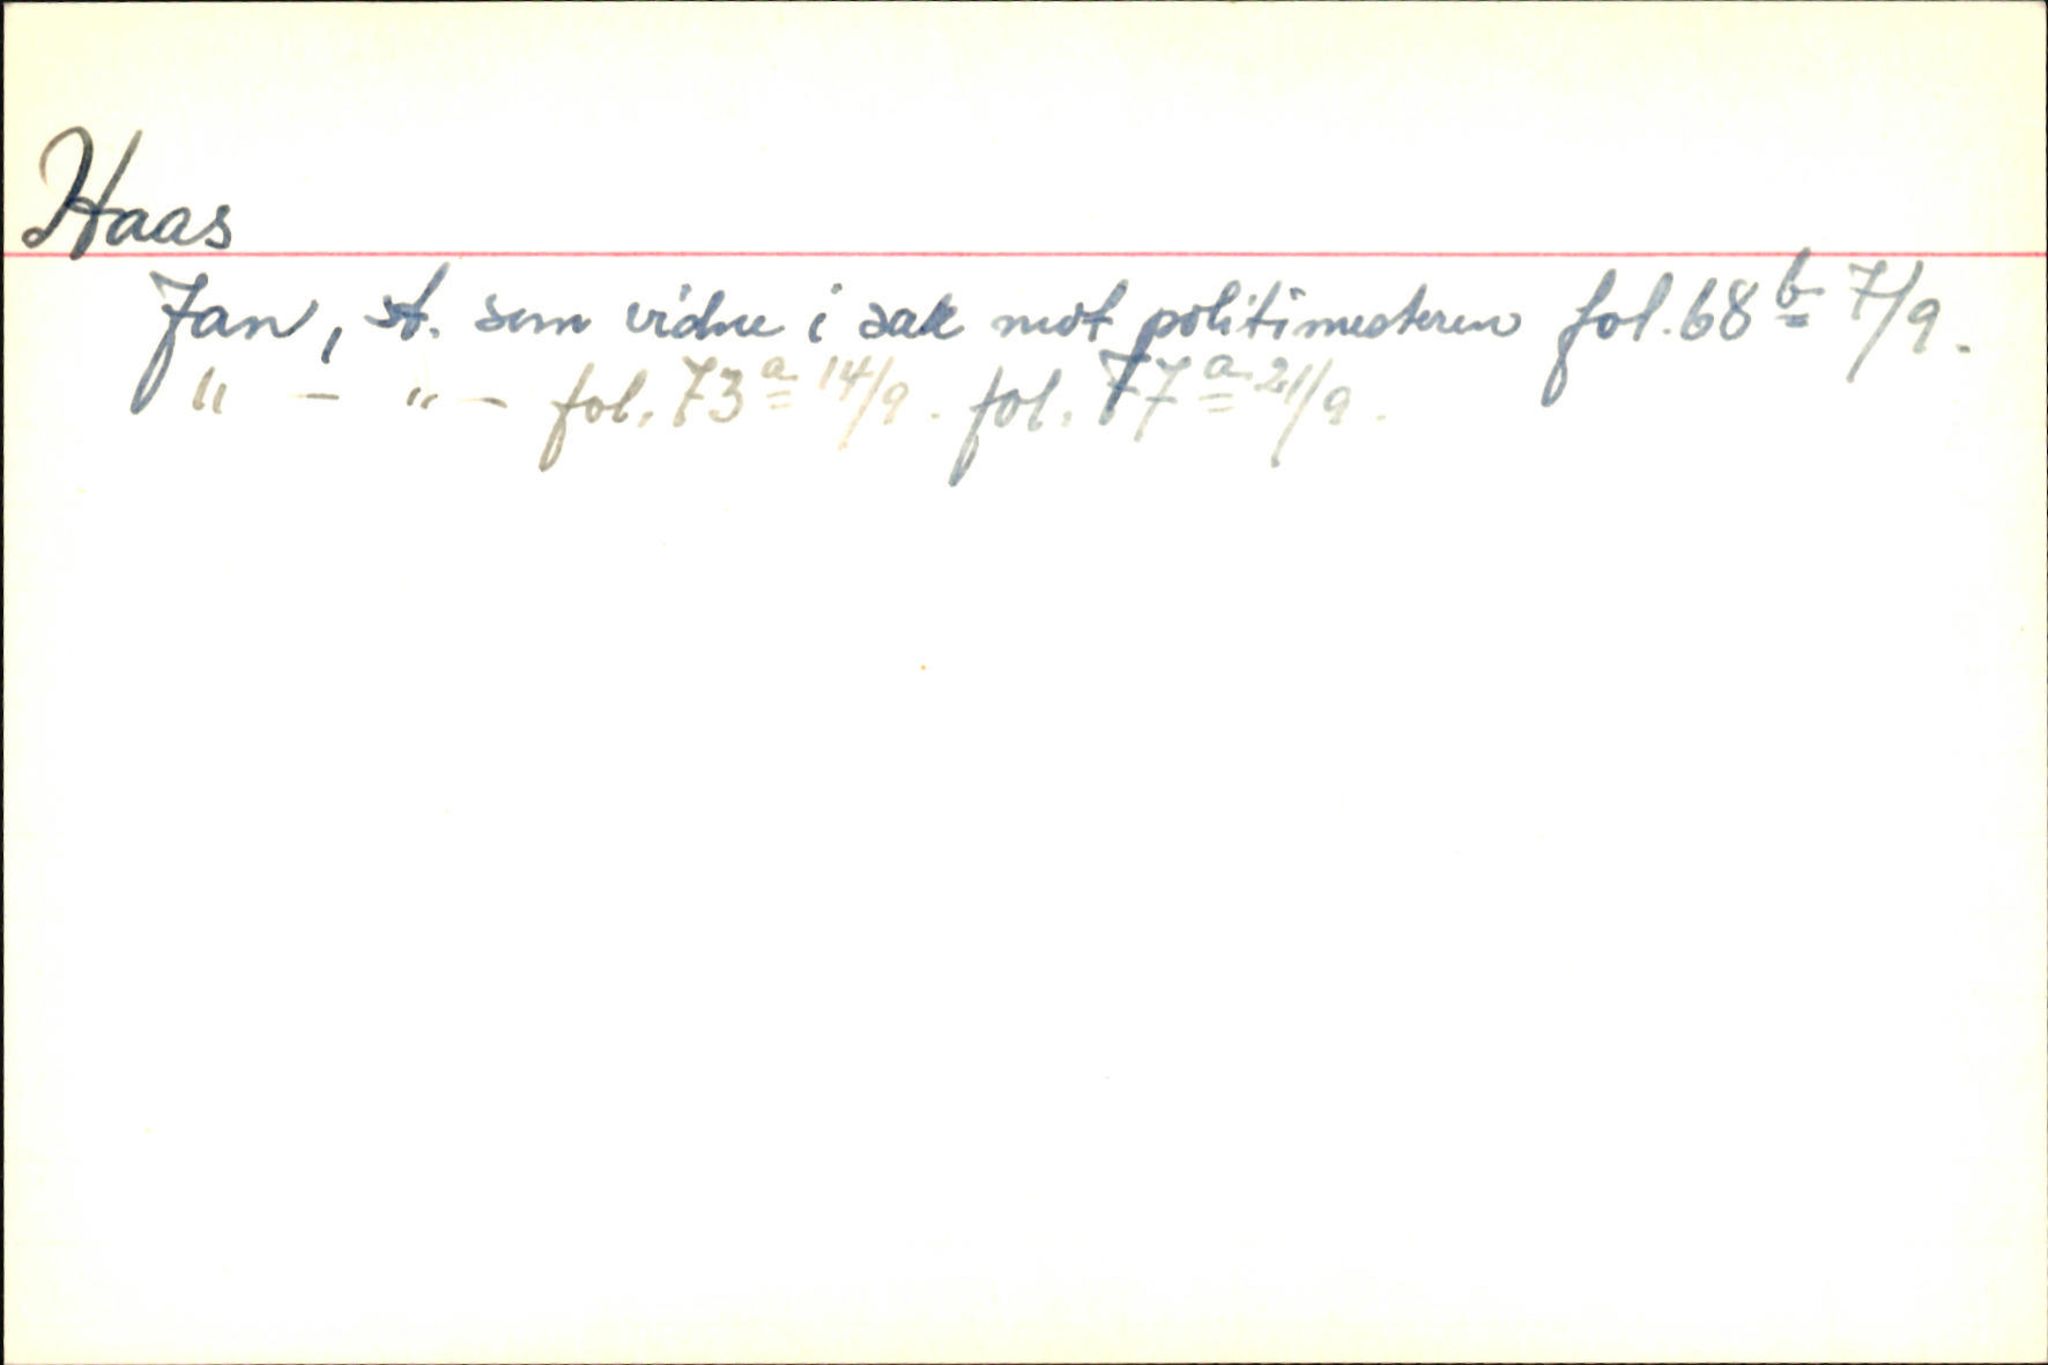 Haas
Jan, st. som vidne i sak mot politimesteren fol. 68 b 7/9.
" - " - fol. 73 a 14/9. fol. 77 a 21/9.